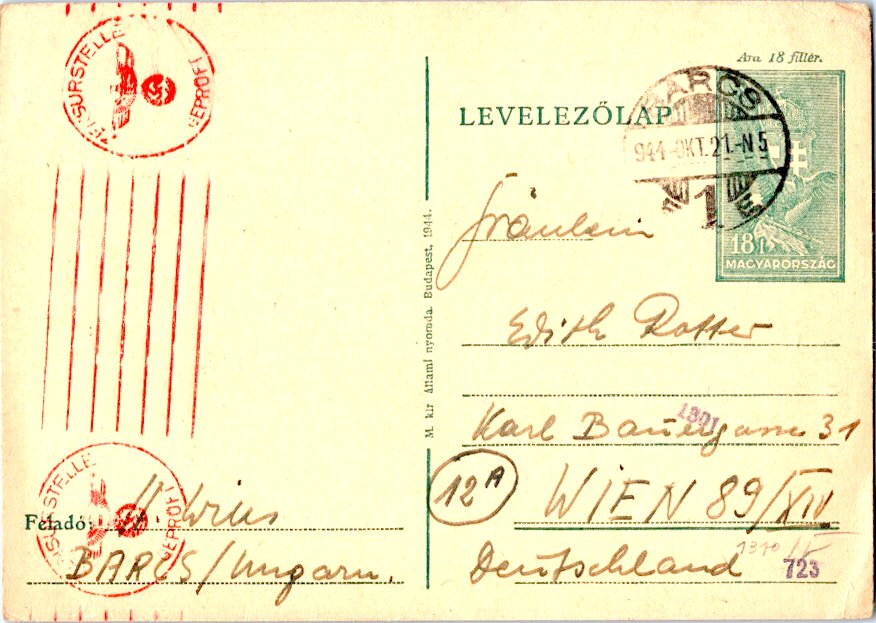 ZENSURSTELLE
GEPRÜFT
Ára 18 fillér.
LEVELEZŐLAP
BARCS
944-OKT.21.-N5
1
18f
MAGYARORSZÁG
M. kir állami nyomda. Budapest, 1944.
Fräulein
Edith Rotter
Karl Bauergasse 31
1087
12A
WIEN 89/XIV
Deutschland
1310
723
ZENSURSTELLE
GEPRÜFT
Feladó:
BARCS/Ungarn.